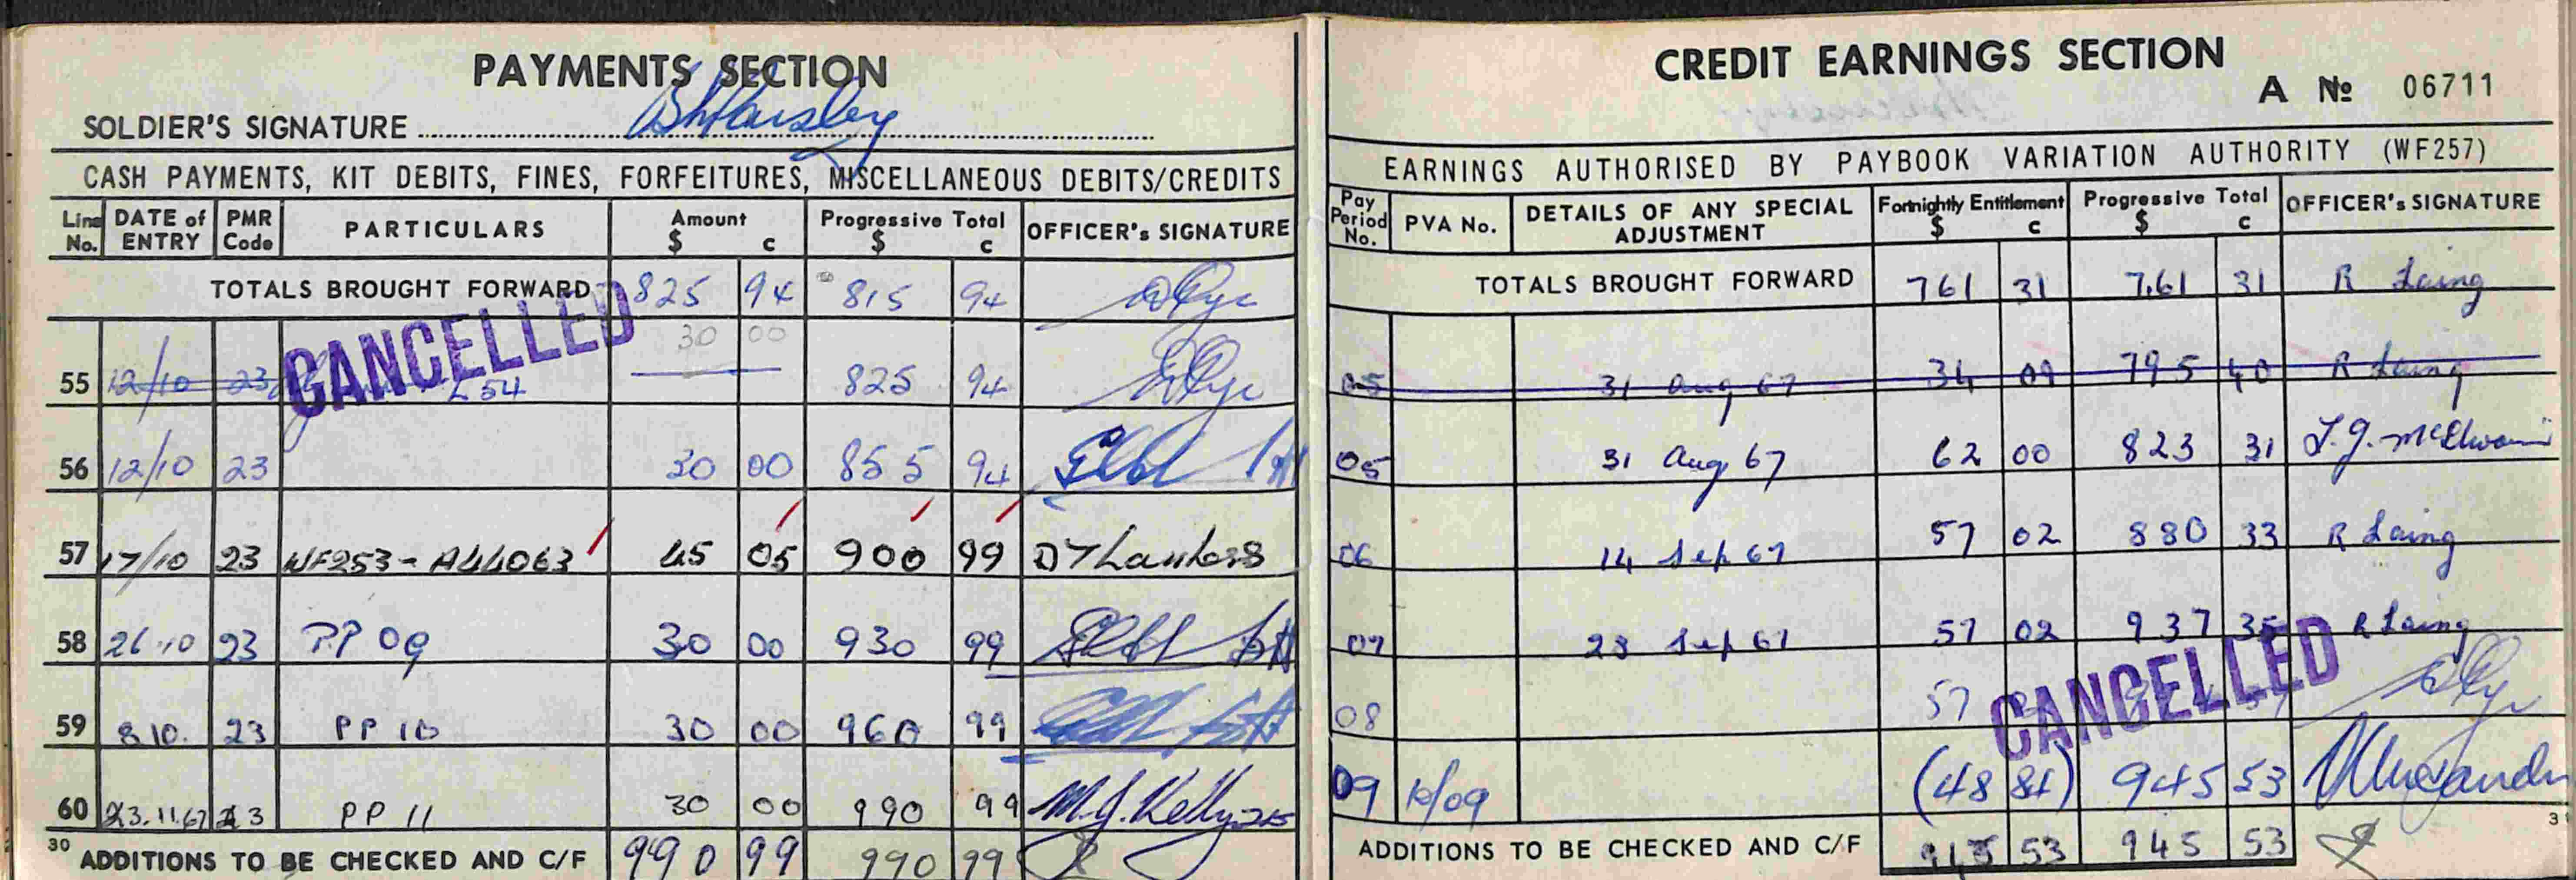 PAYMENTS SECTION
SOLDIER'S SIGNATURE
CASH PAYMENTS, KIT DEBITS, FINES, FORFEITURES, MISCELLANEOUS DEBITS/CREDITS
Line No. DATE of ENTRY PMR Code PARTICULARS Amount $ c Progressive Total $ c OFFICER's SIGNATURE
TOTALS BROUGHT FORWARD 825 94 815 94
30 00
55 12/10 23 254 825 94
CANCELLED
56 12/10 23 30 00 855 94
57 17/10 23 WF253-A44063 45 05 900 99
58 26.10 23 PP 09 30 00 930 99
59 8.10. 23 PP 10 30 00 960 99
60 23.11.67 23 PP 11 30 00 990 99 M.J. Kelly
30 ADDITIONS TO BE CHECKED AND C/F 990 99 990 99
CREDIT EARNINGS SECTION
A No 06711
EARNINGS AUTHORISED BY PAYBOOK VARIATION AUTHORITY (WF257)
Pay Period No. PVA No. DETAILS OF ANY SPECIAL ADJUSTMENT Fortnightly Entitlement $ c Progressive Total $ c OFFICER's SIGNATURE
TOTALS BROUGHT FORWARD 761 31 761 31 R Laing
05 31 Aug 67 34 09 795 40 R Laing
05 31 Aug 67 62 00 823 31
06 14 Sep 67 57 02 880 33 R Laing
07 28 Sep 67 57 02 937 35 R Laing
08 57
CANCELLED
09 10/09 (48 84) 945 53
ADDITIONS TO BE CHECKED AND C/F 945 53 945 53
31